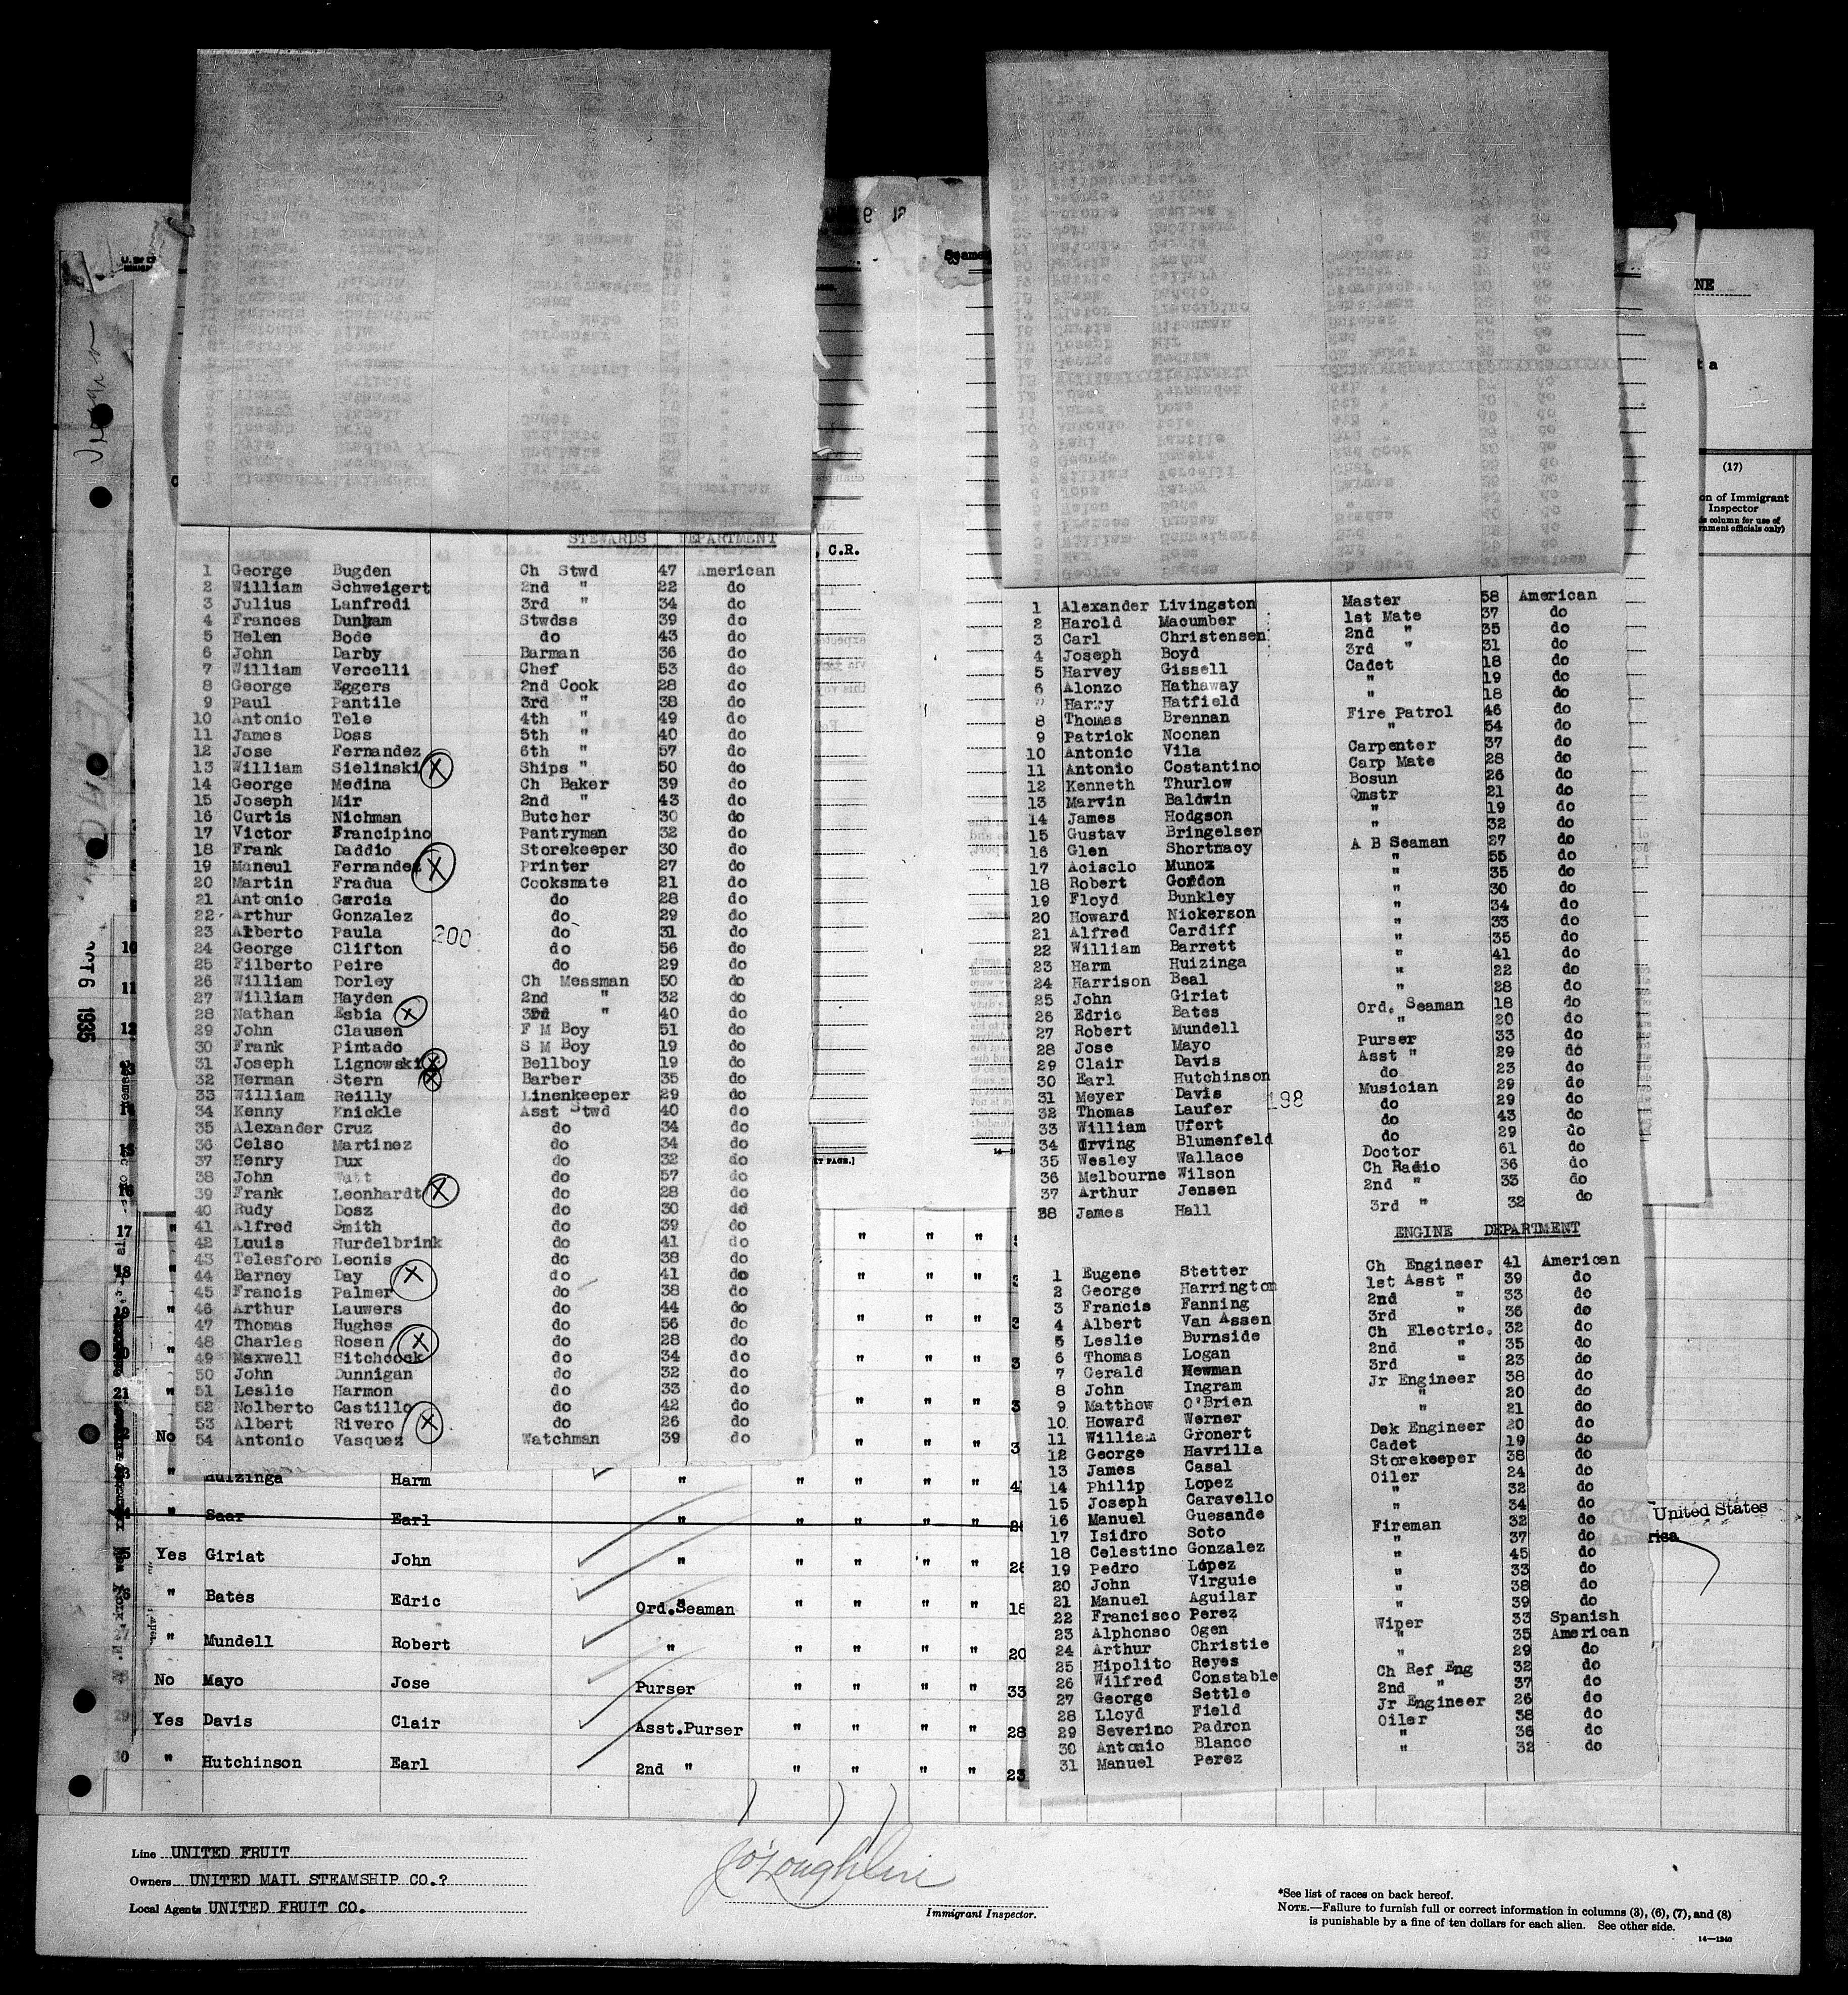 STEWARDS DEPARTMENT
1 George Bugden Ch Stwd 47 American
2 William Schweigert 2nd " 22 do
3 Julius Lanfredi 3rd " 34 do
4 Frances Dunham Stwdss 39 do
5 Helen Bode do 43 do
6 John Darby Barman 36 do
7 William Vercelli Chef 53 do
8 George Eggers 2nd Cook 28 do
9 Paul Pantile 3rd " 38 do
10 Antonio Tele 4th " 49 do
11 James Doss 5th " 40 do
12 Jose Fernandez 6th " 57 do
13 William Sielinski X Ships " 50 do
14 George Medina Ch Baker 39 do
15 Joseph Mir 2nd " 43 do
16 Curtis Nichman Butcher 30 do
17 Victor Francipino Pantryman 32 do
18 Frank Daddio Storekeeper 30 do
19 Maneul Fernandez X Printer 27 do
20 Martin Fradua Cooksmate 21 do
21 Antonio Garcia do 28 do
22 Arthur Gonzalez do 29 do
23 Alberto Paula 200 do 31 do
24 George Clifton do 56 do
25 Filberto Peire do 29 do
26 William Dorley Ch Messman 50 do
27 William Hayden 2nd " 32 do
28 Nathan Esbia X 3rd " 40 do
29 John Clausen F M Boy 51 do
30 Frank Pintado S M Boy 19 do
31 Joseph Lignowski X Bellboy 19 do
32 Herman Stern X Barber 35 do
33 William Reilly Linenkeeper 29 do
34 Kenny Knickle Asst Stwd 40 do
35 Alexander Cruz do 34 do
36 Celso Martinez do 34 do
37 Henry Dux do 32 do
38 John Watt do 57 do
39 Frank Leonhardt X do 28 do
40 Rudy Dosz do 30 do
41 Alfred Smith do 39 do
42 Louis Hurdelbrink do 41 do
43 Telesforo Leonis do 38 do
44 Barney Day X do 41 do
45 Francis Palmer do 38 do
46 Arthur Lauwers do 44 do
47 Thomas Hughes do 56 do
48 Charles Rosen X do 28 do
49 Maxwell Hitchcock do 34 do
50 John Dunnigan do 32 do
51 Leslie Harmon do 33 do
52 Nolberto Castillo do 42 do
53 Albert Rivero X do 26 do
54 Antonio Vasquez Watchman 39 do
1 Alexander Livingston Master 58 American
2 Harold Macumber 1st Mate 37 do
3 Carl Christensen 2nd " 35 do
4 Joseph Boyd 3rd " 31 do
5 Harvey Gissell Cadet 18 do
6 Alonzo Hathaway " 19 do
" Harry Hatfield " 18 do
8 Thomas Brennan Fire Patrol 46 do
9 Patrick Noonan " 54 do
10 Antonio Vila Carpenter 37 do
11 Antonio Costantino Carp Mate 28 do
12 Kenneth Thurlow Bosun 26 do
13 Marvin Baldwin Qmstr 21 do
14 James Hodgson " 19 do
15 Gustav Bringelsen " 32 do
16 Glen Shortnacy A B Seaman 27 do
17 Acisclo Munoz " 55 do
18 Robert Gordon " 35 do
19 Floyd Bunkley " 30 do
20 Howard Nickerson " 34 do
21 Alfred Cardiff " 33 do
22 William Barrett " 35 do
23 Harm Huizinga " 41 do
24 Harrison Beal " 22 do
25 John Giriat " 28 do
26 Edric Bates Ord. Seaman 18 do
27 Robert Mundell " 20 do
28 Jose Mayo Purser 33 do
29 Clair Davis Asst " 29 do
30 Earl Hutchinson do 23 do
31 Meyer Davis 198 Musician 29 do
32 Thomas Laufer do 29 do
33 William Ufert do 43 do
34 Irving Blumenfeld do 29 do
35 Wesley Wallace Doctor 61 do
36 Melbourne Wilson Ch Radio 36 do
37 Arthur Jensen 2nd " 33 do
38 James Hall 3rd " 32 do
ENGINE DEPARTMENT
1 Eugene Stetter Ch Engineer 41 American
2 George Harrington 1st Asst " 39 do
3 Francis Fanning 2nd " 33 do
4 Albert Van Assen 3rd " 36 do
5 Leslie Burnside Ch Electric. 32 do
6 Thomas Logan 2nd " 35 do
7 Gerald Newman 3rd " 23 do
8 John Ingram Jr Engineer 38 do
9 Matthew O'Brien " 20 do
10. Howard Werner " 21 do
11 William Gronert Dek Engineer 20 do
12 George Havrilla Cadet 19 do
13 James Casal Storekeeper 38 do
14 Philip Lopez Oiler 24 do
15 Joseph Caravello " 32 do
16 Manuel Guesande " 34 do
17 Isidro Soto Fireman 32 do
18 Celestino Gonzalez " 37 do
19 Pedro Lopez " 45 do
20 John Virguie " 33 do
21 Manuel Aguilar " 38 do
22 Francisco Perez " 39 do
23 Alphonso Ogen Wiper 33 Spanish
24 Arthur Christie " 35 American
25 Hipolito Reyes " 29 do
26 Wilfred Constable Ch Ref Eng 32 do
27 George Settle 2nd " 37 do
28 Lloyd Field Jr Engineer 26 do
29 Severino Padron Oiler 38 do
30 Antonio Blanco " 36 do
31 Manuel Perez " 32 do
NE
t a
(17)
on of Immigrant
Inspector
column for use of
rnment officials only)
, C.R.
OCT 6 1935
Huizinga Harm " " " " "
Saar Earl " " " " "
Yes Giriat John " " " " " 28
" Bates Edric Ord.Seaman " " " " 18
" Mundell Robert " " " " " 20
No Mayo Jose Purser " " " " 33
29 Yes Davis Clair Asst.Purser " " " " 28
30 " Hutchinson Earl 2nd " " " " " 23
United States
rica
Line UNITED FRUIT
Owners UNITED MAIL STEAMSHIP CO.?
Local Agents UNITED FRUIT CO.
J O'Loughlin
Immigrant Inspector.
*See list of races on back hereof.
NOTE.—Failure to furnish full or correct information in columns (3), (6), (7), and (8)
is punishable by a fine of ten dollars for each alien. See other side.
14—1240